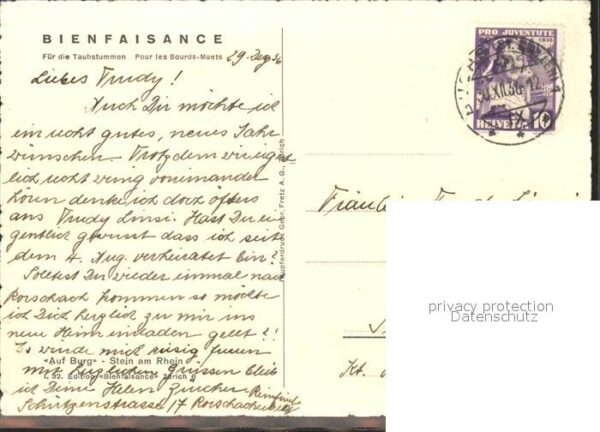 BIENFAISANCE
Für die Taubstummen Pour les Sourds-Muets 29. Dez 36
Liebes Trudy!
Auch Dir möchte ich
ein recht gutes, neues Jahr
wünschen. Trotzdem wir
lich recht wenig voneinander
hören denke ich doch öfters
ans Trudy Linsi. Hast Du ei-
gentlich gewusst dass ich seit
dem 4. Aug. verheiratet bin?
Solltest Du wieder einmal nach
Rorschach kommen so möchte
ich Dich herzlich zu mir ins
neue Heim einladen gell?!
Es würde mich riesig freuen
«Auf Burg» - Stein am Rhein
mit herzlichen Grüssen bleib
I. 32. Edition «Bienfaisance» Zürich 6
ich Deine Helen Zürcher
Schützenstrasse 17 Rorschacherberg
Kupferdruck Gebr. Fretz A.G., Zürich
PRO JUVENTUTE
1936
HELVETIA 10
XII.36
Fräulein
Kt.
privacy protection
Datenschutz